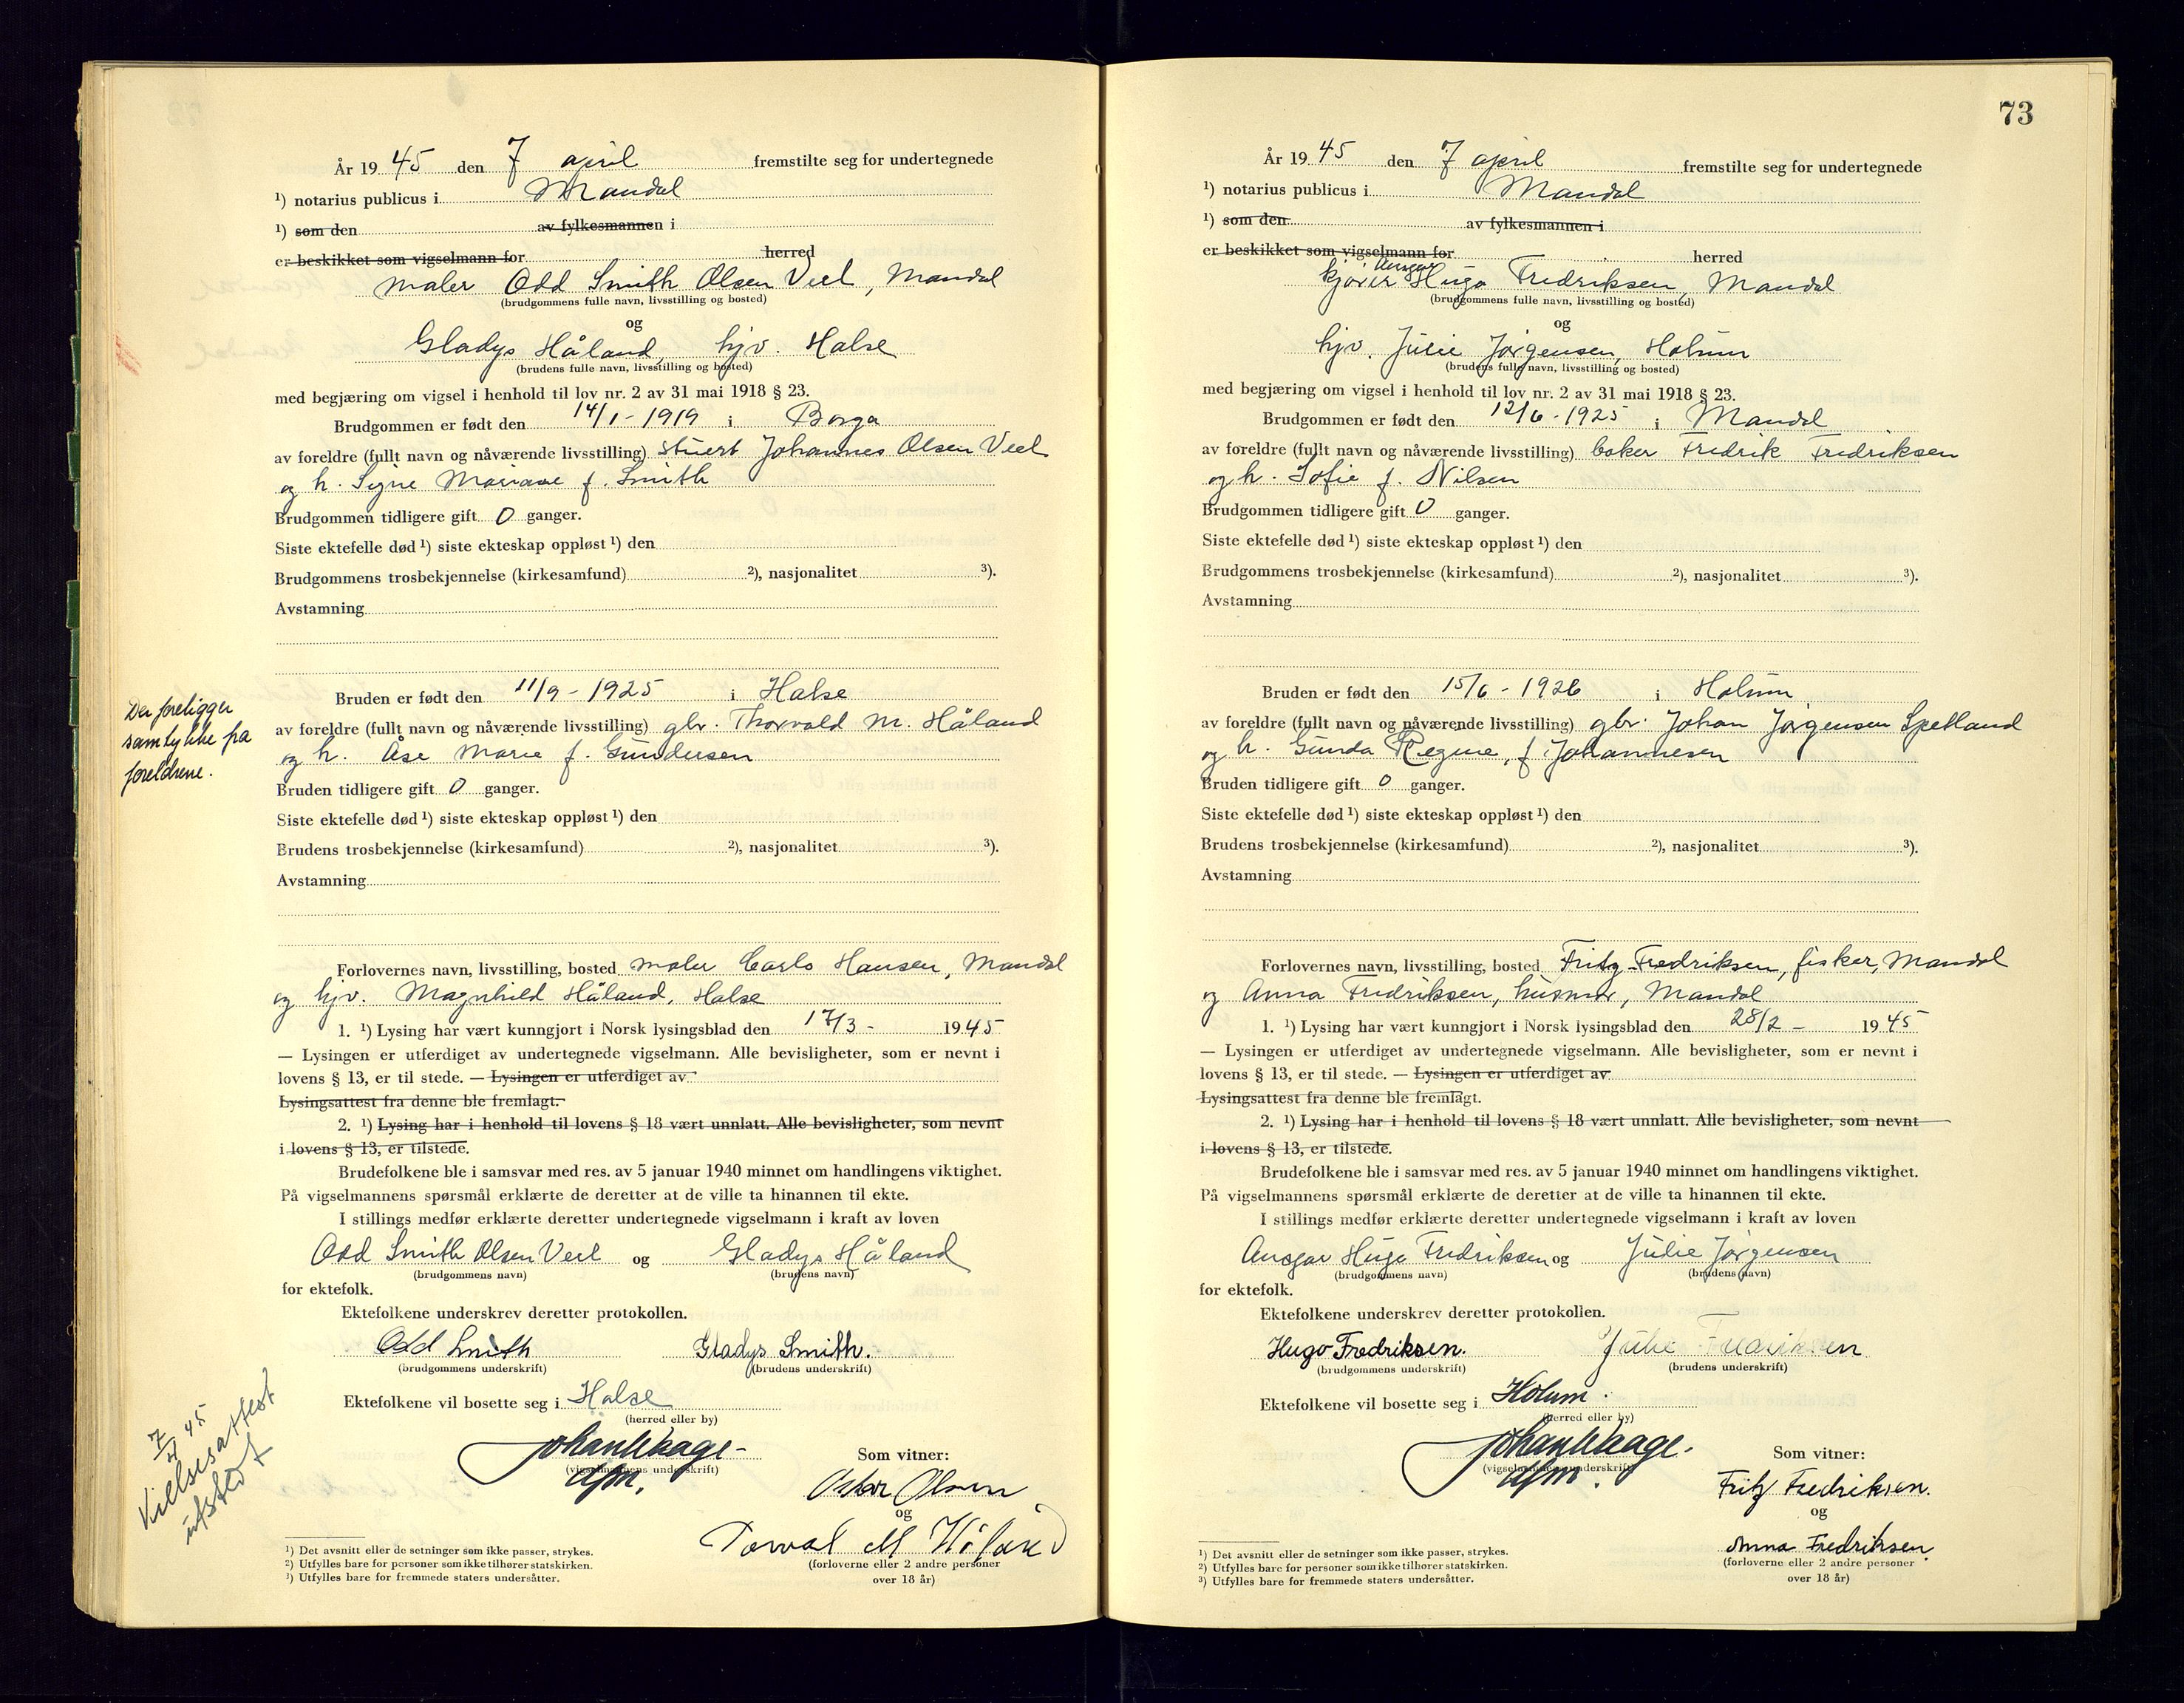 År 19 45 den 7 april fremstilte seg for undertegnede
¹) notarius publicus i Mandal
¹) som den av fylkesmannen i
er beskikket som vigselmann for herred
maler Odd Smith Olsen Veel, Mandal
(brudgommens fulle navn, livsstilling og bosted)
og
Gladys Håland, hjv. Halse
(brudens fulle navn, livsstilling og bosted)
med begjæring om vigsel i henhold til lov nr. 2 av 31 mai 1918 § 23.
Brudgommen er født den 14/1-1919 i Borga
av foreldre (fullt navn og nåværende livsstilling) stuert Johannes Olsen Veel
og h. Signe Mariane f. Smith
Brudgommen tidligere gift 0 ganger.
Siste ektefelle død ¹) siste ekteskap oppløst ¹) den
Brudgommens trosbekjennelse (kirkesamfund) ²), nasjonalitet ³).
Avstamning
Bruden er født den 11/9-1925 i Halse
av foreldre (fullt navn og nåværende livsstilling) gbr. Thorvald M. Håland
og h. Åse Marie f. Gundersen
Bruden tidligere gift 0 ganger.
Siste ektefelle død ¹) siste ekteskap oppløst ¹) den
Brudens trosbekjennelse (kirkesamfund) ²), nasjonalitet ³).
Avstamning
Der foreligger
samtykke fra
foreldrene.
Forlovernes navn, livsstilling, bosted maler Carlo Hansen, Mandal
og hjv. Magnhild Håland, Halse
1. ¹) Lysing har vært kunngjort i Norsk lysingsblad den 17/3- 1945
— Lysingen er utferdiget av undertegnede vigselmann. Alle bevisligheter, som er nevnt i
lovens § 13, er til stede. — Lysingen er utferdiget av
Lysingsattest fra denne ble fremlagt.
2. ¹) Lysing har i henhold til lovens § 18 vært unnlatt. Alle bevisligheter, som nevnt
i lovens § 13, er tilstede.
Brudefolkene ble i samsvar med res. av 5 januar 1940 minnet om handlingens viktighet.
På vigselmannens spørsmål erklærte de deretter at de ville ta hinannen til ekte.
I stillings medfør erklærte deretter undertegnede vigselmann i kraft av loven
Odd Smith Olsen Veel og Gladys Håland
(brudgommens navn) (brudens navn)
for ektefolk.
Ektefolkene underskrev deretter protokollen.
Odd Smith Gladys Smith.
(brudgommens underskrift) (brudens underskrift)
Ektefolkene vil bosette seg i Halse
(herred eller by)
Johan Waage-
(vigselmannens underskrift)
dfm.
Som vitner:
Oskar Olsen
og
Torval M Håland
(forloverne eller 2 andre personer
over 18 år)
7/4 45
Vielsesattest
utstedt
¹) Det avsnitt eller de setninger som ikke passer, strykes.
²) Utfylles bare for personer som ikke tilhører statskirken.
³) Utfylles bare for fremmede staters undersåtter.
73
År 19 45 den 7 april fremstilte seg for undertegnede
¹) notarius publicus i Mandal
¹) som den av fylkesmannen i
er beskikket som vigselmann for herred
Ansgar
kjører Hugo Fredriksen, Mandal
(brudgommens fulle navn, livsstilling og bosted)
og
hjv. Julie Jørgensen, Holum
(brudens fulle navn, livsstilling og bosted)
med begjæring om vigsel i henhold til lov nr. 2 av 31 mai 1918 § 23.
Brudgommen er født den 12/6-1925 i Mandal
av foreldre (fullt navn og nåværende livsstilling) baker Fredrik Fredriksen
og h. Sofie f. Nilsen
Brudgommen tidligere gift 0 ganger.
Siste ektefelle død ¹) siste ekteskap oppløst ¹) den
Brudgommens trosbekjennelse (kirkesamfund) ²), nasjonalitet ³).
Avstamning
Bruden er født den 15/6-1926 i Holum
av foreldre (fullt navn og nåværende livsstilling) gbr. Johan Jørgensen Spetland
og h. Gunda Regine, f. Johannesen
Bruden tidligere gift 0 ganger.
Siste ektefelle død ¹) siste ekteskap oppløst ¹) den
Brudens trosbekjennelse (kirkesamfund) ²), nasjonalitet ³).
Avstamning
Forlovernes navn, livsstilling, bosted Fritz Fredriksen, fisker, Mandal
og Anna Fredriksen, husmor, Mandal
1. ¹) Lysing har vært kunngjort i Norsk lysingsblad den 28/2- 1945
— Lysingen er utferdiget av undertegnede vigselmann. Alle bevisligheter, som er nevnt i
lovens § 13, er til stede. — Lysingen er utferdiget av
Lysingsattest fra denne ble fremlagt.
2. ¹) Lysing har i henhold til lovens § 18 vært unnlatt. Alle bevisligheter, som nevnt
i lovens § 13, er tilstede.
Brudefolkene ble i samsvar med res. av 5 januar 1940 minnet om handlingens viktighet.
På vigselmannens spørsmål erklærte de deretter at de ville ta hinannen til ekte.
I stillings medfør erklærte deretter undertegnede vigselmann i kraft av loven
Ansgar Hugo Fredriksen og Julie Jørgensen
(brudgommens navn) (brudens navn)
for ektefolk.
Ektefolkene underskrev deretter protokollen.
Hugo Fredriksen. Julie Fredriksen
(brudgommens underskrift) (brudens underskrift)
Ektefolkene vil bosette seg i Holum.
(herred eller by)
Johan Waage.
(vigselmannens underskrift)
dfm.
Som vitner:
Fritz Fredriksen.
og
Anna Fredriksen.
(forloverne eller 2 andre personer
over 18 år)
¹) Det avsnitt eller de setninger som ikke passer, strykes.
²) Utfylles bare for personer som ikke tilhører statskirken.
³) Utfylles bare for fremmede staters undersåtter.